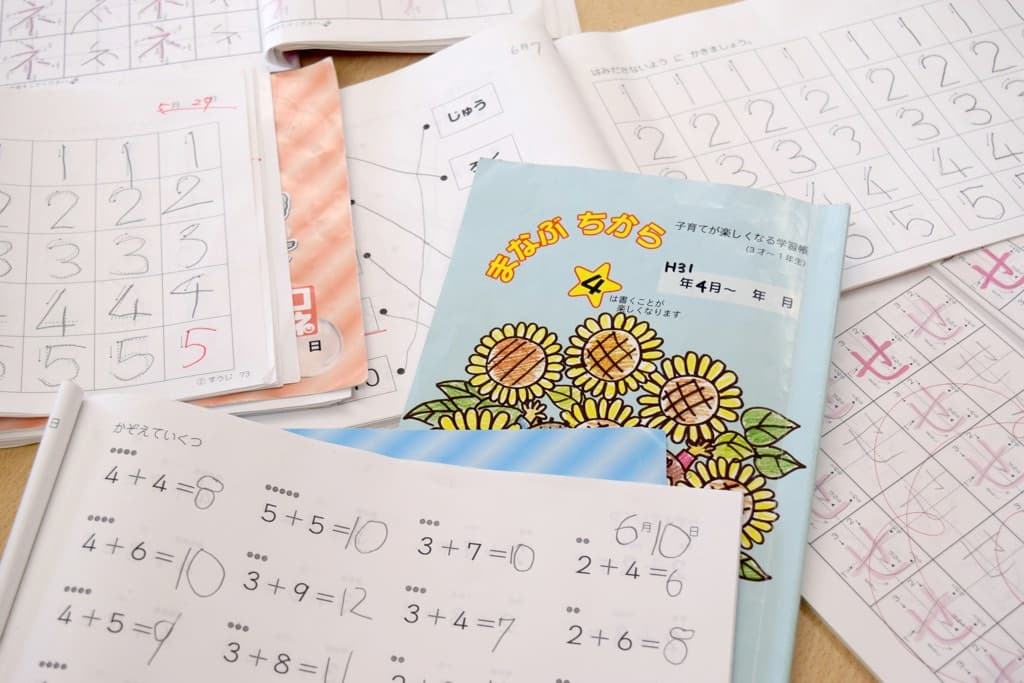 ネ ネ ネ ネ
5月29日
1 1 1
2 2 2
3 3 3 3
4 4 4
5 5 5
② すうじ 73
日
6月7
じゅう
はみださないよう に かきましょう。
1 1 1 1 1 1
2 2 2 2 2 2 2
3 3 3 3 3
4 4 4
5 5 5
まなぶ ちから
子育てが楽しくなる学習帳
(3才〜1年生)
4
は書くことが
楽しくなります
H31
年4月〜 年 月
せ
せ せ
せ せ
せ
せ
日
かぞえていくつ
6月10日
4+4=8
5+5=10
3+7=10
2+4=6
4+6=10
3+9=12
3+4=7
2+6=8
4+5=9
3+8=11